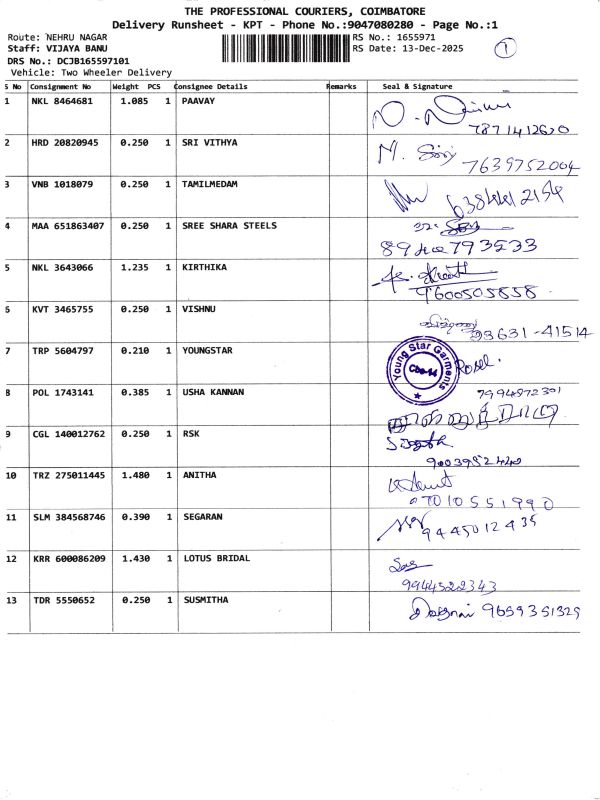 THE PROFESSIONAL COURIERS, COIMBATORE
Delivery Runsheet - KPT - Phone No.:9047080280 - Page No.:1
Route: NEHRU NAGAR RS No.: 1655971
Staff: VIJAYA BANU RS Date: 13-Dec-2025 1
DRS No.: DCJB165597101
Vehicle: Two Wheeler Delivery
S No Consignment No Weight PCS Consignee Details Remarks Seal & Signature
1 NKL 8464681 1.085 1 PAAVAY
2 HRD 20820945 0.250 1 SRI VITHYA
7639752004
3 VNB 1018079 0.250 1 TAMILMEDAM
4 MAA 651863407 0.250 1 SREE SHARA STEELS
5 NKL 3643066 1.235 1 KIRTHIKA
9600505858
6 KVT 3465755 0.250 1 VISHNU
93631-41514
7 TRP 5604797 0.210 1 YOUNGSTAR
Young Star Garments
Cbe-14
8 POL 1743141 0.385 1 USHA KANNAN
9 CGL 140012762 0.250 1 RSK
10 TRZ 275011445 1.480 1 ANITHA
7010551990
11 SLM 384568746 0.390 1 SEGARAN
9445012435
12 KRR 600086209 1.430 1 LOTUS BRIDAL
9944522343
13 TDR 5550652 0.250 1 SUSMITHA
9659351325